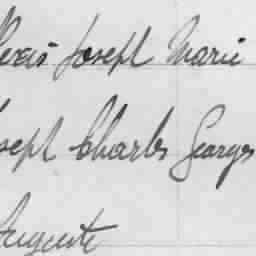 Joseph Marie
Joseph Charles Georges
Auguste